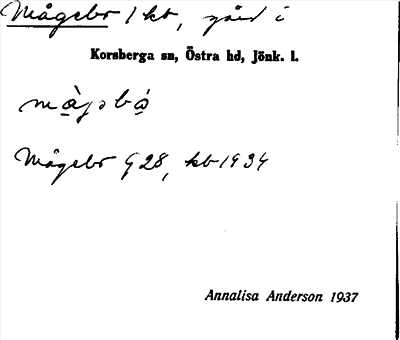 Mågebo 1 kb, gård i
Korsberga sn, Östra hd, Jönk. l.
Mågebo G 28, kb 1934
Annalisa Anderson 1937